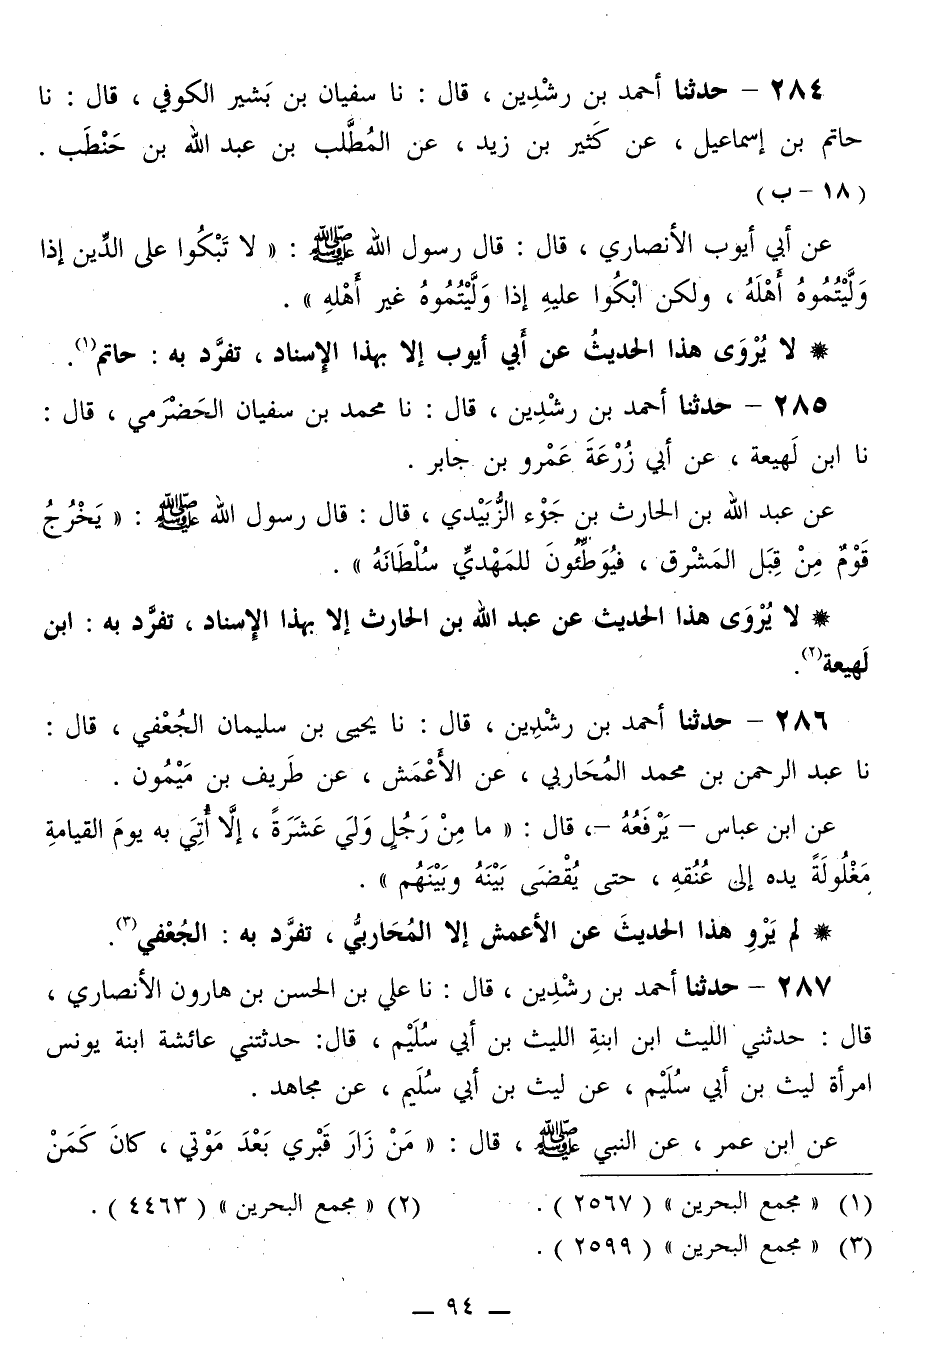 ٢٨٤ – حدثنا أحمد بن رشْدِين ، قال : نا سفيان بن بَشير الكوفي ، قال : نا
حاتم بن إسماعيل ، عن كَثير بن زيد ، عن المُطَّلب بن عبد الله بن حَنْطَب .
( ١٨ – ب )
عن أبي أيوب الأنصاري ، قال : قال رسول الله ﷺ : « لا تَبْكُوا على الدِّين إذا
وَلَّيْتُمُوهُ أَهْلَهُ ، ولكن ابْكُوا عليهِ إذا وَلَّيْتُمُوهُ غير أَهْلهِ » .
* لا يُرْوَى هذا الحديثُ عن أَبي أيوب إلا بهذا الإِسناد ، تفرَّد به : حاتم(١).
٢٨٥ – حدثنا أحمد بن رشْدِين ، قال : نا محمد بن سفيان الحَضْرَمي ، قال :
نا ابن لَهيعة ، عن أبي زُرْعَةَ عَمْرو بن جابر .
عن عبد الله بن الحارث بن جَزْء الزُّبَيْدي ، قال : قال رسول الله ﷺ : « يَخْرُجُ
قَوْمٌ مِنْ قِبَل المَشْرق ، فيُوَطِّئُونَ للمَهْديِّ سُلْطَانَهُ » .
* لا يُرْوَى هذا الحديث عن عبد الله بن الحارث إلا بهذا الإِسناد ، تفرَّد به : ابن
لَهيعة(٢).
٢٨٦ – حدثنا أحمد بن رشْدِين ، قال : نا يحيى بن سليمان الجُعْفي ، قال :
نا عبد الرحمن بن محمد المُحَاربي ، عن الأَعْمَش ، عن طَريف بن مَيْمُون .
عن ابن عباس – يَرْفَعُهُ –، قال : « ما مِنْ رَجُلٍ وَلَي عَشَرَةً ، إلَّا أُتِيَ به يومَ القيامةِ
مَغْلُولَةً يده إلى عُنُقهِ ، حتى يُقْضَى بَيْنَهُ وبَيْنَهُم » .
* لم يَرْوِ هذا الحديثَ عن الأعمش إلا المُحَاربيُّ ، تفرَّد به : الجُعْفي(٣).
٢٨٧ – حدثنا أحمد بن رشْدِين ، قال : نا علي بن الحسن بن هارون الأنصاري ،
قال : حدثني الليث ابن ابنةِ الليث بن أبي سُلَيْم ، قال: حدثتني عائشة ابنة يونس
امرأة ليث بن أبي سُلَيْم ، عن ليث بن أبي سُلَيم ، عن مجاهد .
عن ابن عمر ، عن النبي ﷺ ، قال : « مَنْ زَارَ قَبْري بَعْدَ مَوْتي ، كانَ كَمَنْ
(١) « مجمع البحرين » ( ٢٥٦٧ ) . (٢) « مجمع البحرين » ( ٤٤٦٣ ) .
(٣) « مجمع البحرين » ( ٢٥٩٩ ) .
– ٩٤ –